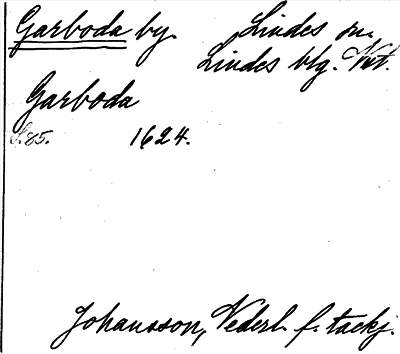 Garboda by. Lindes sn.
Lindes blg. Vst.
Garboda
S. 85. 1624.
Johansson, Nederl. f. tackj.